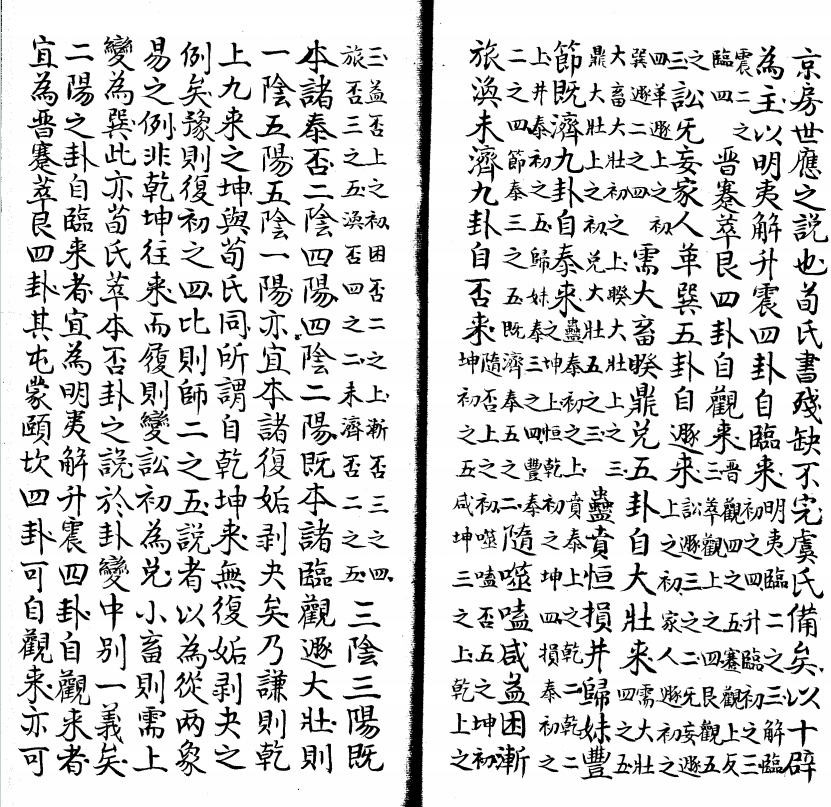 京房世應之說也荀氏書殘缺不完虞氏備矣以十辟
為主以明夷解升震四卦自臨来明夷臨二之三解臨初之四升臨初之三
震二之臨四晋蹇萃艮四卦自觀来晋觀四之五蹇觀上反三萃觀上之四艮觀五
之三訟旡妄家人革巽五卦自遯来訟遯三之二旡妄遯上之初家人遯初之
四革遯上之初巽遯二之四需大畜睽鼎兌五卦自大壯来需大壯四之五
大畜大壯初之上睽大壯上之三鼎大壯上之初兌大壯五之三蠱賁恒損井歸妹豐
節既濟九卦自泰来蠱泰初之上賁泰上之乾二乾二之坤上恒乾初之坤四損泰初之
上井泰初之五歸妹泰三之四豐泰二之四節泰三之五既濟泰五之二隨噬嗑咸益困漸
旅渙未濟九卦自否来隨否上之初噬嗑否五之坤初坤初之五咸坤三之上乾上之
三益否上之初困否二之上漸否三之四旅否三之五渙否四之二未濟否二之五三陰三陽既
本諸泰否二陰四陽四陰二陽既本諸臨觀遯大壯則
一陰五陽五陰一陽亦宜本諸復姤剥夬矣乃謙則乾
上九来之坤與荀氏同所謂自乾坤来無復姤剥夬之
例矣豫則復初之四比則師二之五說者以為從兩象
易之例非乾坤往来而履則變訟初為兌小畜則需上
變為巽此亦荀氏萃本否卦之說於卦變中别一義矣
二陽之卦自臨来者宜為明夷解升震四卦自觀来者
宜為晋蹇萃艮四卦其屯蒙頤坎四卦可自觀来亦可